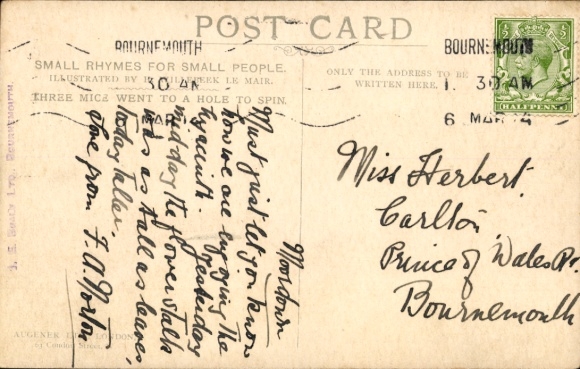 POST CARD
SMALL RHYMES FOR SMALL PEOPLE.
ILLUSTRATED BY H. WILLEBEEK LE MAIR.
THREE MICE WENT TO A HOLE TO SPIN.
ONLY THE ADDRESS TO BE
WRITTEN HERE.
BOURNEMOUTH
30 AM
MAR
BOURNEMOUTH
1. 30 AM
6 MAR 4
HALFPENNY
Moordown
Must just let you know
how we are enjoying the
hyacinth. Yesterday
mid day the flower stalk
was as tall as leaves,
today taller.
love from F. A. Norton
Miss Herbert
Carlton
Prince of Wales Rd
Bournemouth
AUGENER LTD. LONDON
63 Conduit Street
LTD. BOURNEMOUTH